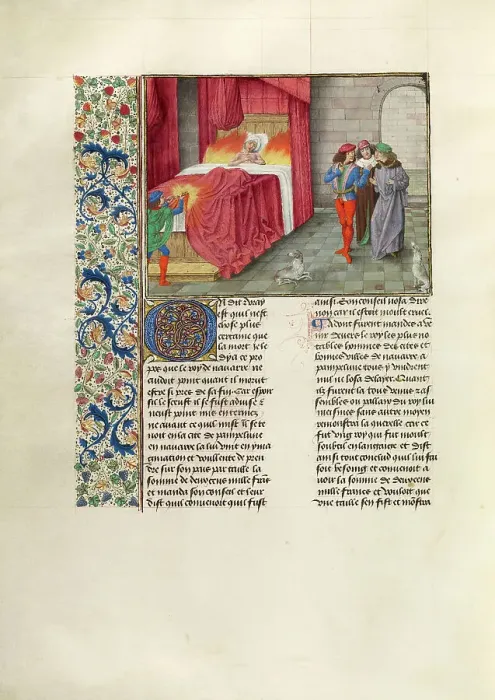 On dit et vray
est qui l nest
chose plus
certaine que
la mort Je le
dy a ce pro
pos que le roy de navarre ne
cuidoit point quant il morut
estre si pres de sa fin Car espoir
sil le sceust il se fust advise Et
neust point mis en termez
ne avant ce quil mist Il se te
noit en la cite de pampelune
en navarre la luy vint en yma
cination et voullente de pren
dre sur son pais par taille la
somme de deux cens mille frans
et manda son conseil et leur
dist quil convenoit quil fust
ainsi Son conseil nosa dire
non car il estoit moult cruel
Adont furent mandes a ve
nir devers le roy les plus no
tables hommes des cites et
bonnes villes de navarre a
pampelune tous y vindrent
nul ne losa delayer Quant
ilz furent la tous venus et as
semblez ou pallaix du roy lui
meismes sans autre moyen
remonstra la querelle car ce
fut ung roy qui fut moult
soubtil en langaige et dist
ainsi tout conclud quil lui fai
soit besoing et convenoit a
voir la somme de deux cens
mille frans et vouloit que
une taille sen fist et monstra